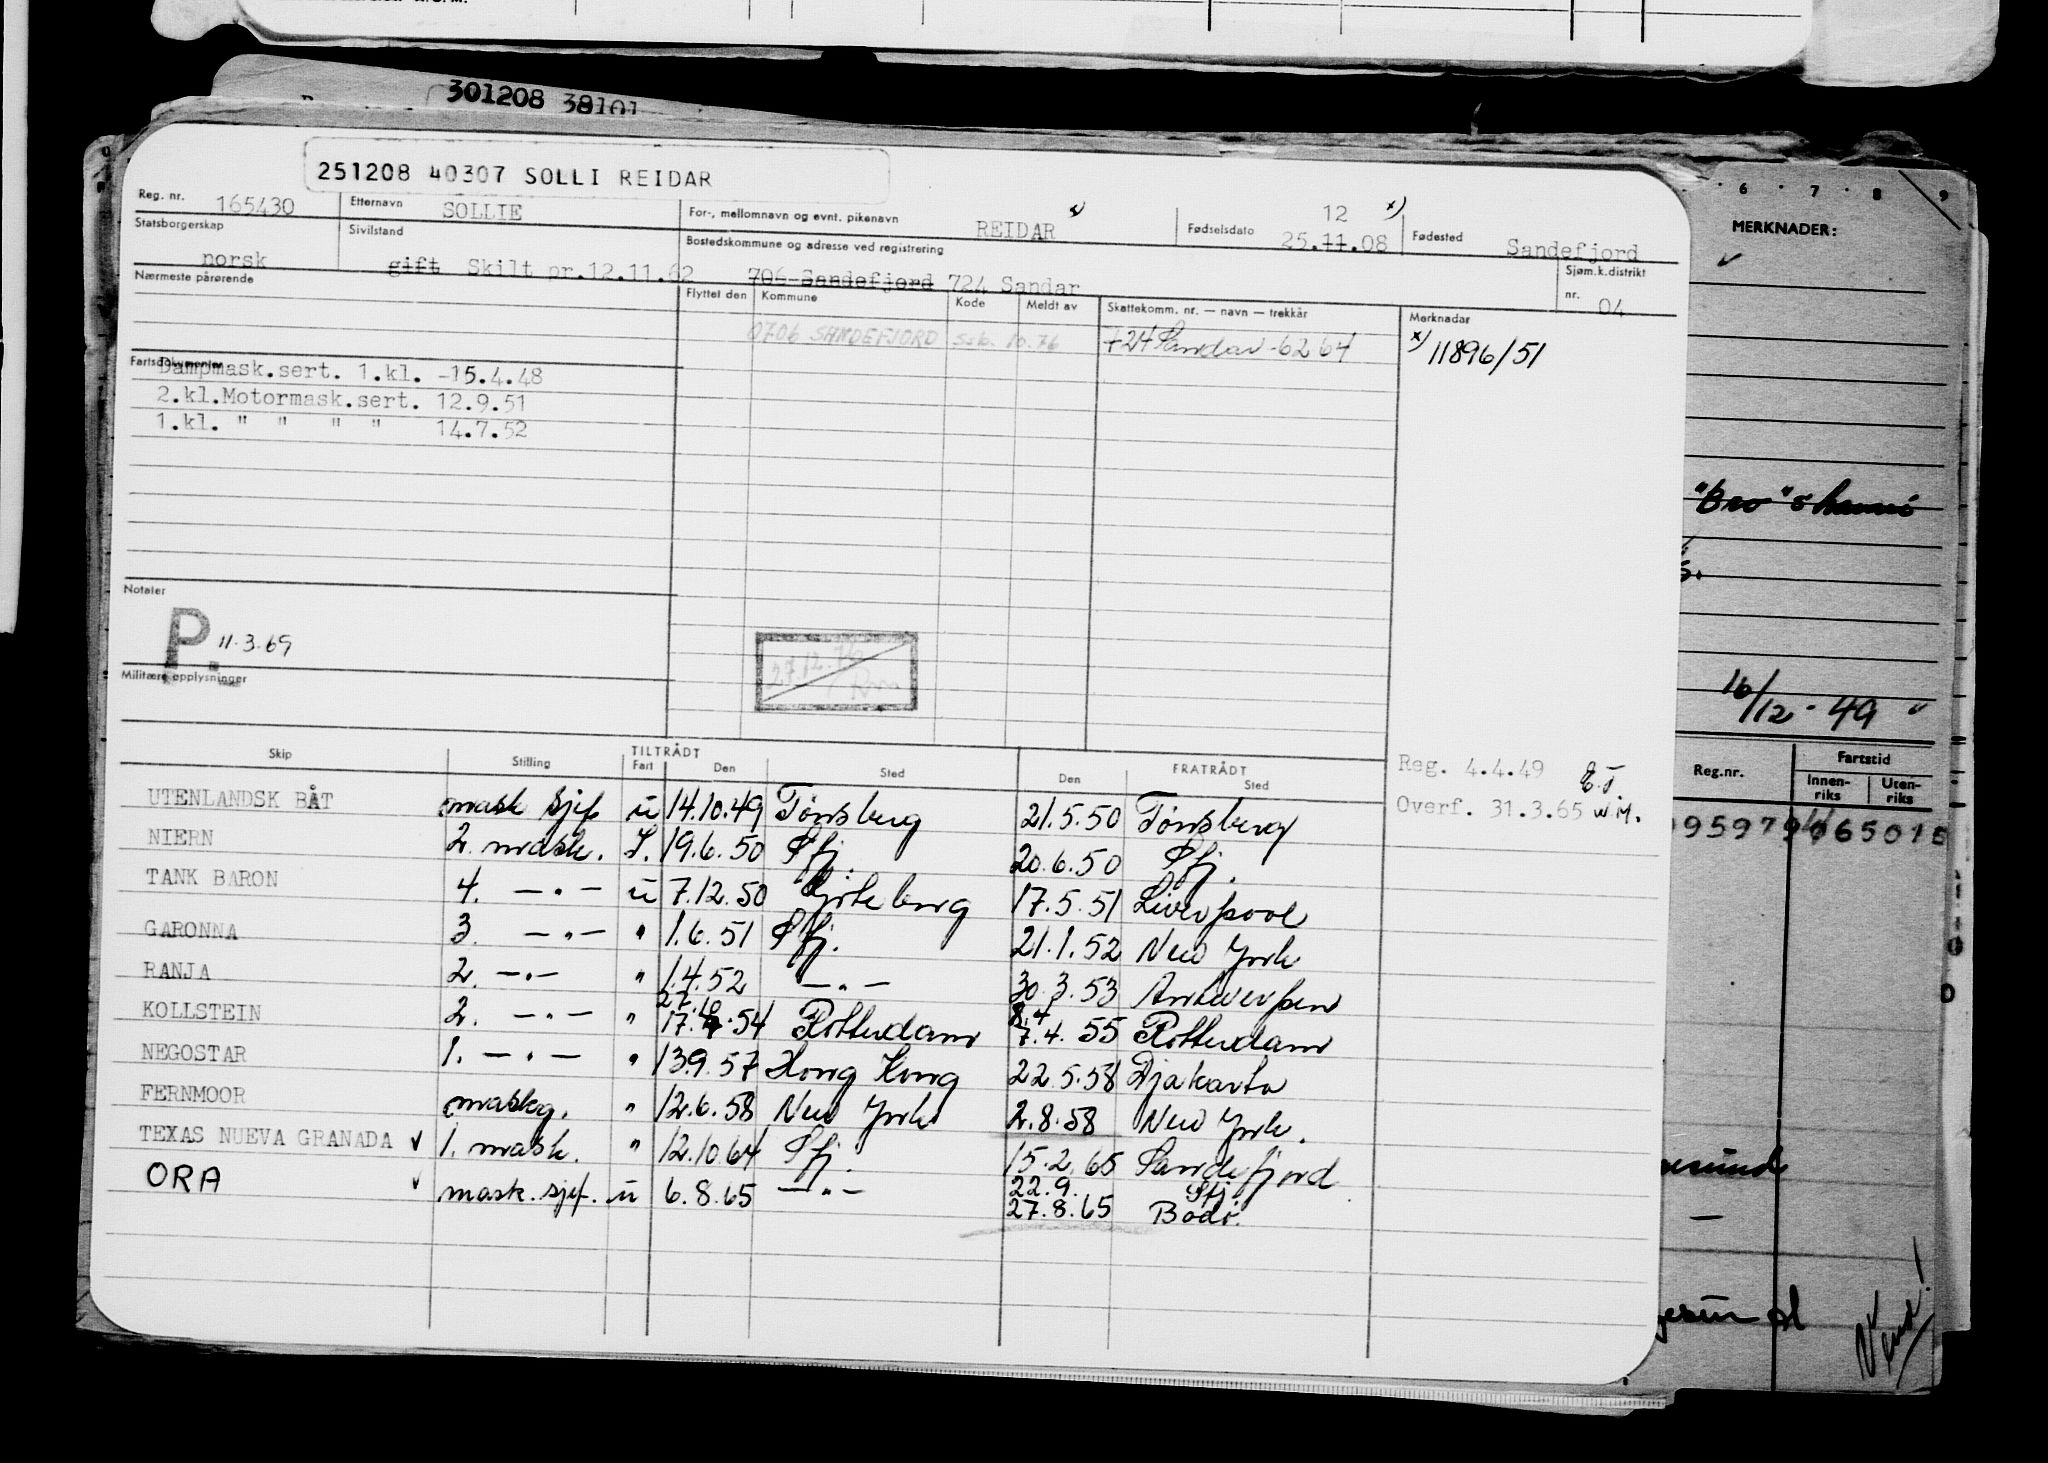 301208 38101
251208 40307 SOLLI REIDAR
Reg. nr. 165430 Etternavn SOLLIE For-, mellomnavn og evnt. pikenavn REIDAR Fødselsdato 25.11.08 12 x) Fødested Sandefjord
Statsborgerskap norsk Sivilstand gift Skilt pr.12.11.62 Bostedskommune og adresse ved registrering 706 Sandefjord 724 Sandar Sjøm.k.distrikt nr. 04
Nærmeste pårørende Flyttet den Kommune Kode Meldt av Skattekomm. nr. — navn — trekkår Merknader
0706 SANDEFJORD Ssb. 10.76 724 Sandar -62 64 x) 11896/51
Fartsdokumenter
Dampmask.sert. 1.kl. -15.4.48
2.kl.Motormask.sert. 12.9.51
1.kl. " " " " 14.7.52
Notater
P. 11.3.69
27.12.76
Militære opplysninger
Skip Stilling TILTRÅDT Fart Den Sted FRATRÅDT Den Sted
Reg. 4.4.49 E.T.
Overf. 31.3.65 W.M.
UTENLANDSK BÅT mask sjef u 14.10.49 Tønsberg 21.5.50 Tønsberg
NIERN 2. mask. I. 19.6.50 Sfj. 20.6.50 Sfj.
TANK BARON 4. —"— u 7.12.50 Gøteborg 17.5.51 Liverpool
GARONNA 3. —"— " 1.6.51 Sfj. 21.1.52 New York
RANJA 2. —"— " 1.4.52 —"— 30.3.53 Antwerpen
KOLLSTEIN 2. —"— " 27.10 17.4.54 Rotterdam 8.4 7.4.55 Rotterdam
NEGOSTAR 1. —"— " 13.9.57 Hong Kong 22.5.58 Djakarta
FERNMOOR maskg. " 12.6.58 New York 2.8.58 New York.
TEXAS NUEVA GRANADA ✓ 1. mask. " 12.10.64 Sfj. 15.2.65 Sandefjord
ORA ✓ mask. sjef. u 6.8.65 —"— 22.9. Sfj.
27.8.65 Bodø.
6 7 8 9
MERKNADER:
"Bro"
16/12-49
Reg.nr. Fartstid
Innenriks Utenriks